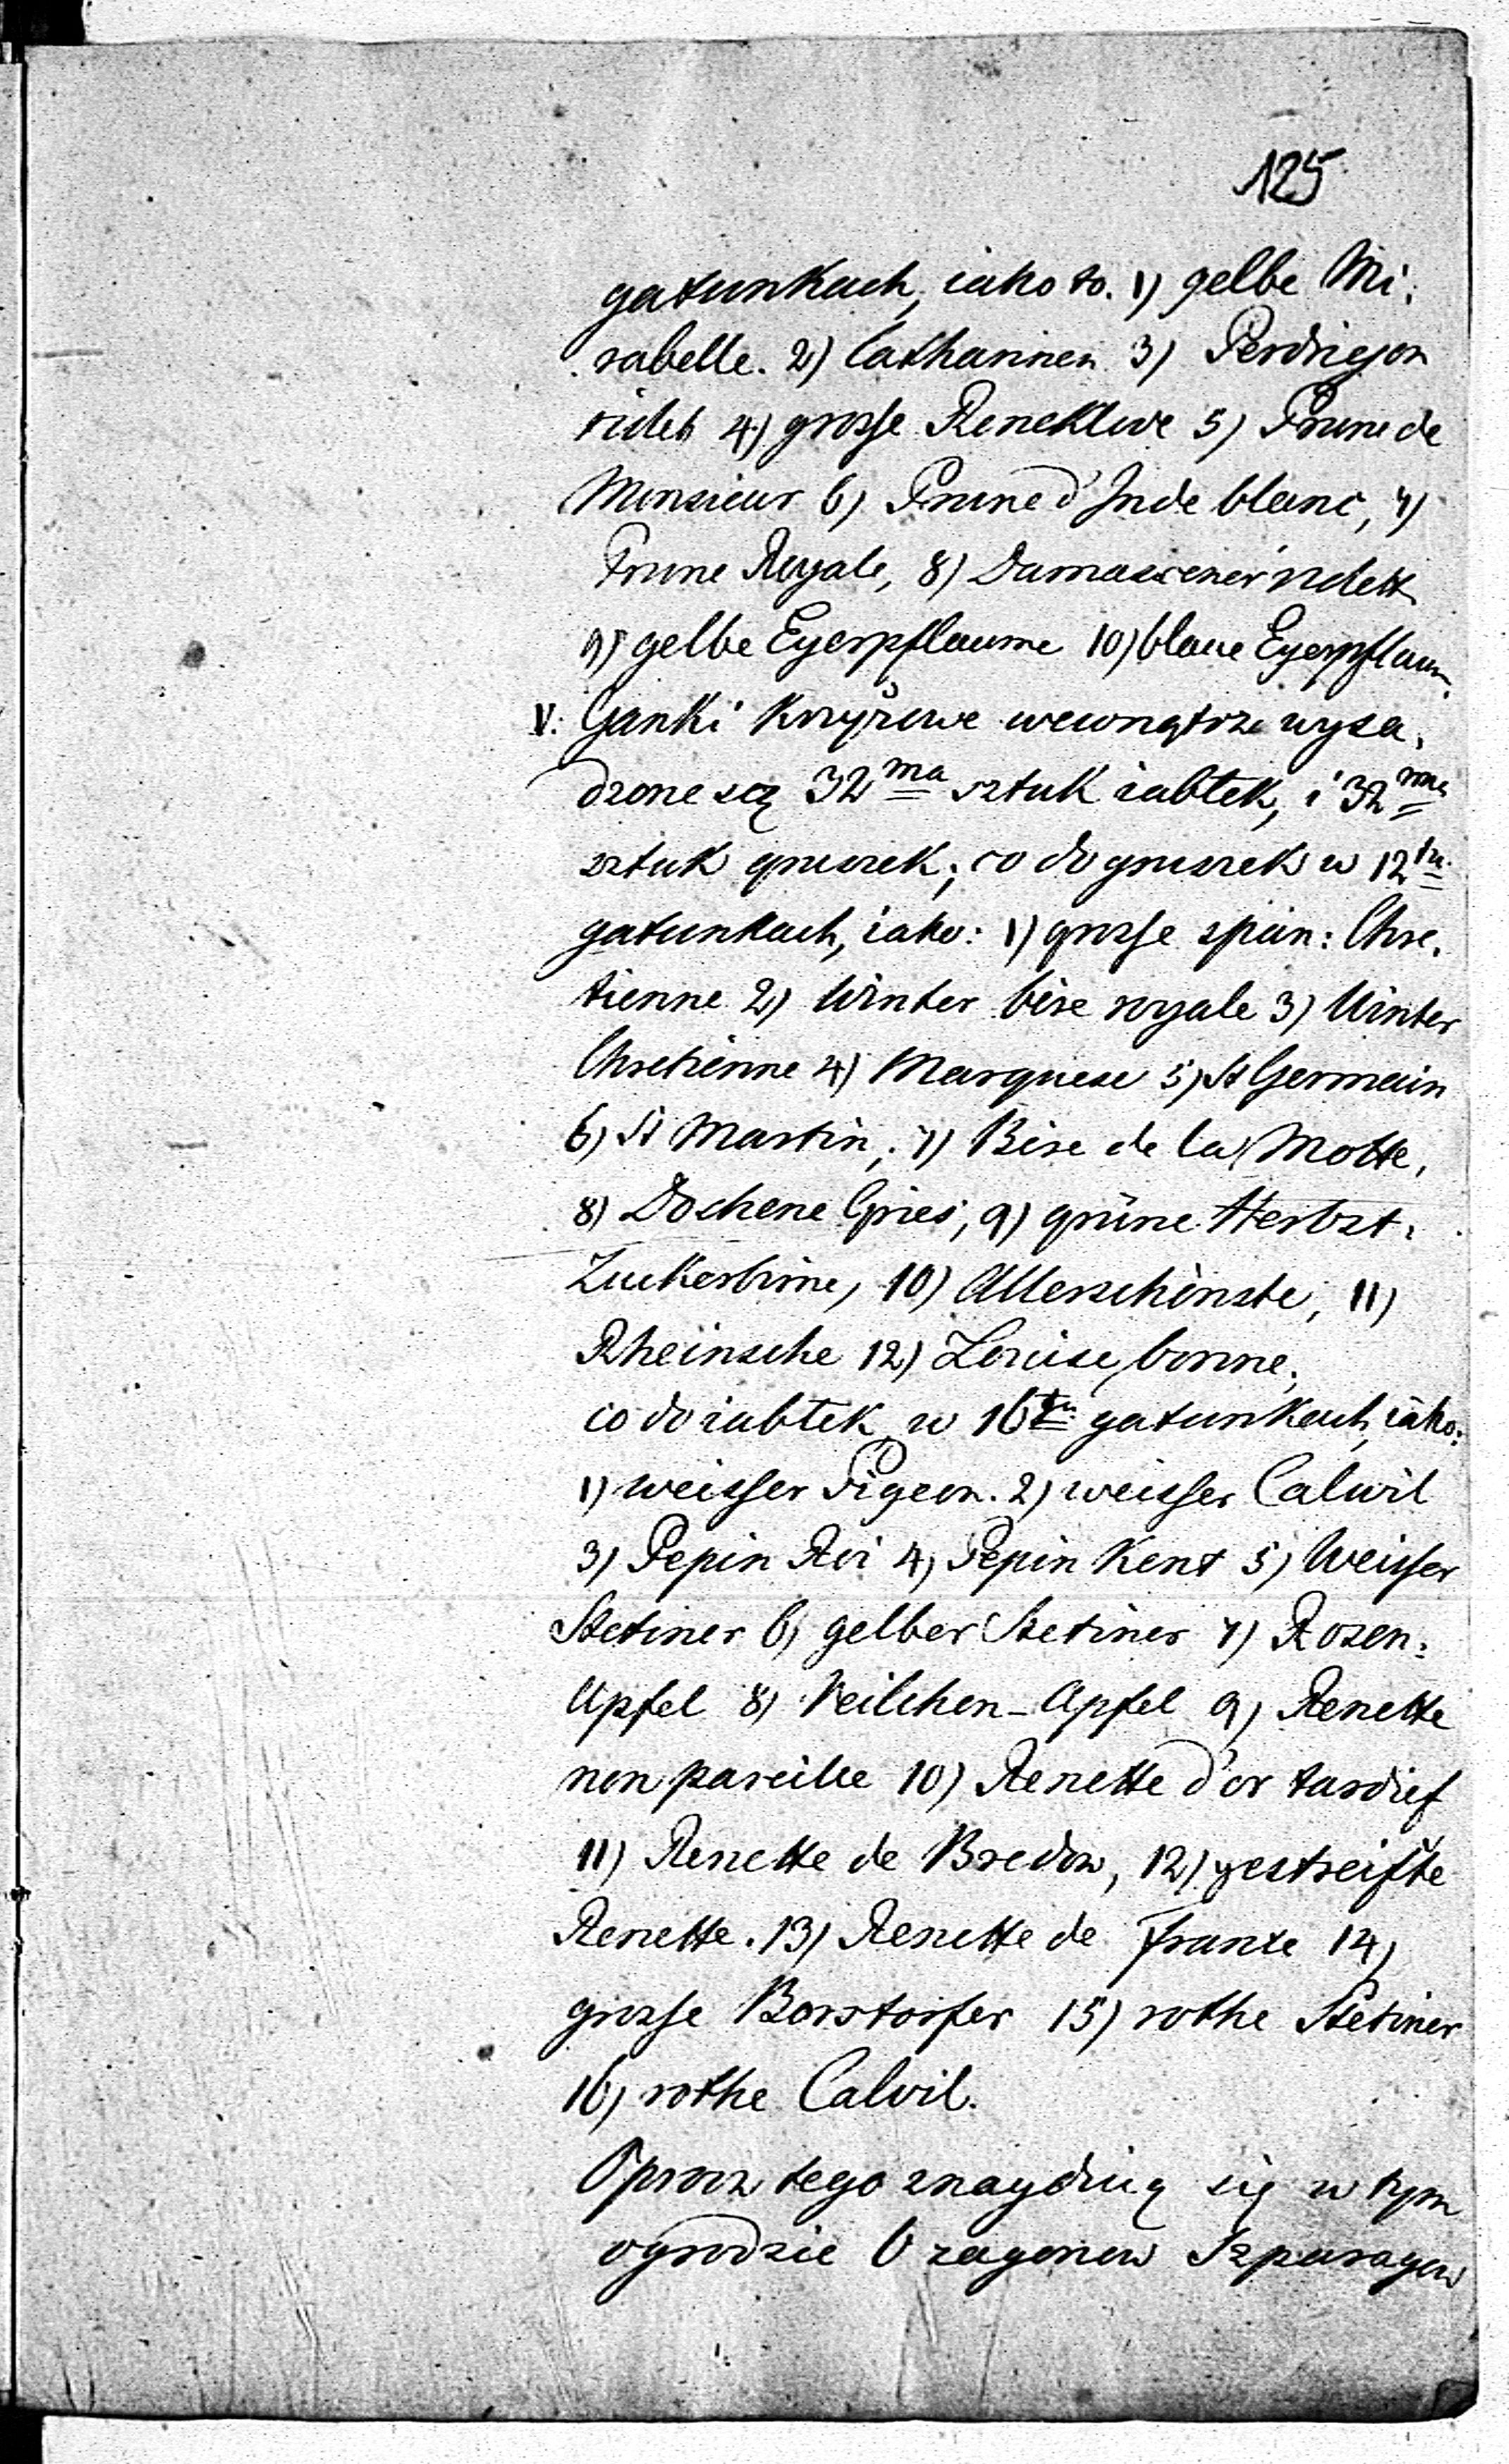 125
gatunkach, iako to. 1) gelbe Mi-
rabelle. 2) Catharinen 3) Perdrigon
violet 4) grosse Reneklode 5) Prune de
Monsieur 6) Prune d'Inde blanc, 7)
Prune Royale, 8) Damascener violett
9) gelbe Eyerpflaume 10) blaue Eyerpflaum.
V. Ganki krzyżowe wewnątrz wysa-
dzone są 32ma sztuk iabłek, i 32ma
sztuk gruszek; co do gruszek w 12tu
gatunkach, iako: 1) grosse span: Chre-
tienne 2) Winter bire royale 3) Winter
Chretienne 4) Marquese 5) St Germain
6) St Martin, 7) Bire de la Motte,
8) Dochene Gries, 9) grüne Herbst-
Zuckerbirne, 10) Allerschönste, 11)
Rheinsche 12) Louise bonne,
co do iabłek w 16tu gatunkach, iako:
1) weisser Pigeon. 2) weisser Calwil
3) Pepin Roi 4) Pepin Kent 5) Weisser
Stetiner 6) gelber Stetiner 7) Rosen-
Apfel 8) Veilchen-Apfel 9) Renette
non pareille 10) Renette d'or tardief
11) Renette de Bredow, 12) gestreifte
Renette. 13) Renette de France 14)
grosse Borstorfer 15) rothe Stetiner
16) rothe Calvil.
Oprocz tego znayduią się w tym
ogrodzie 6 zagonow Szparagow